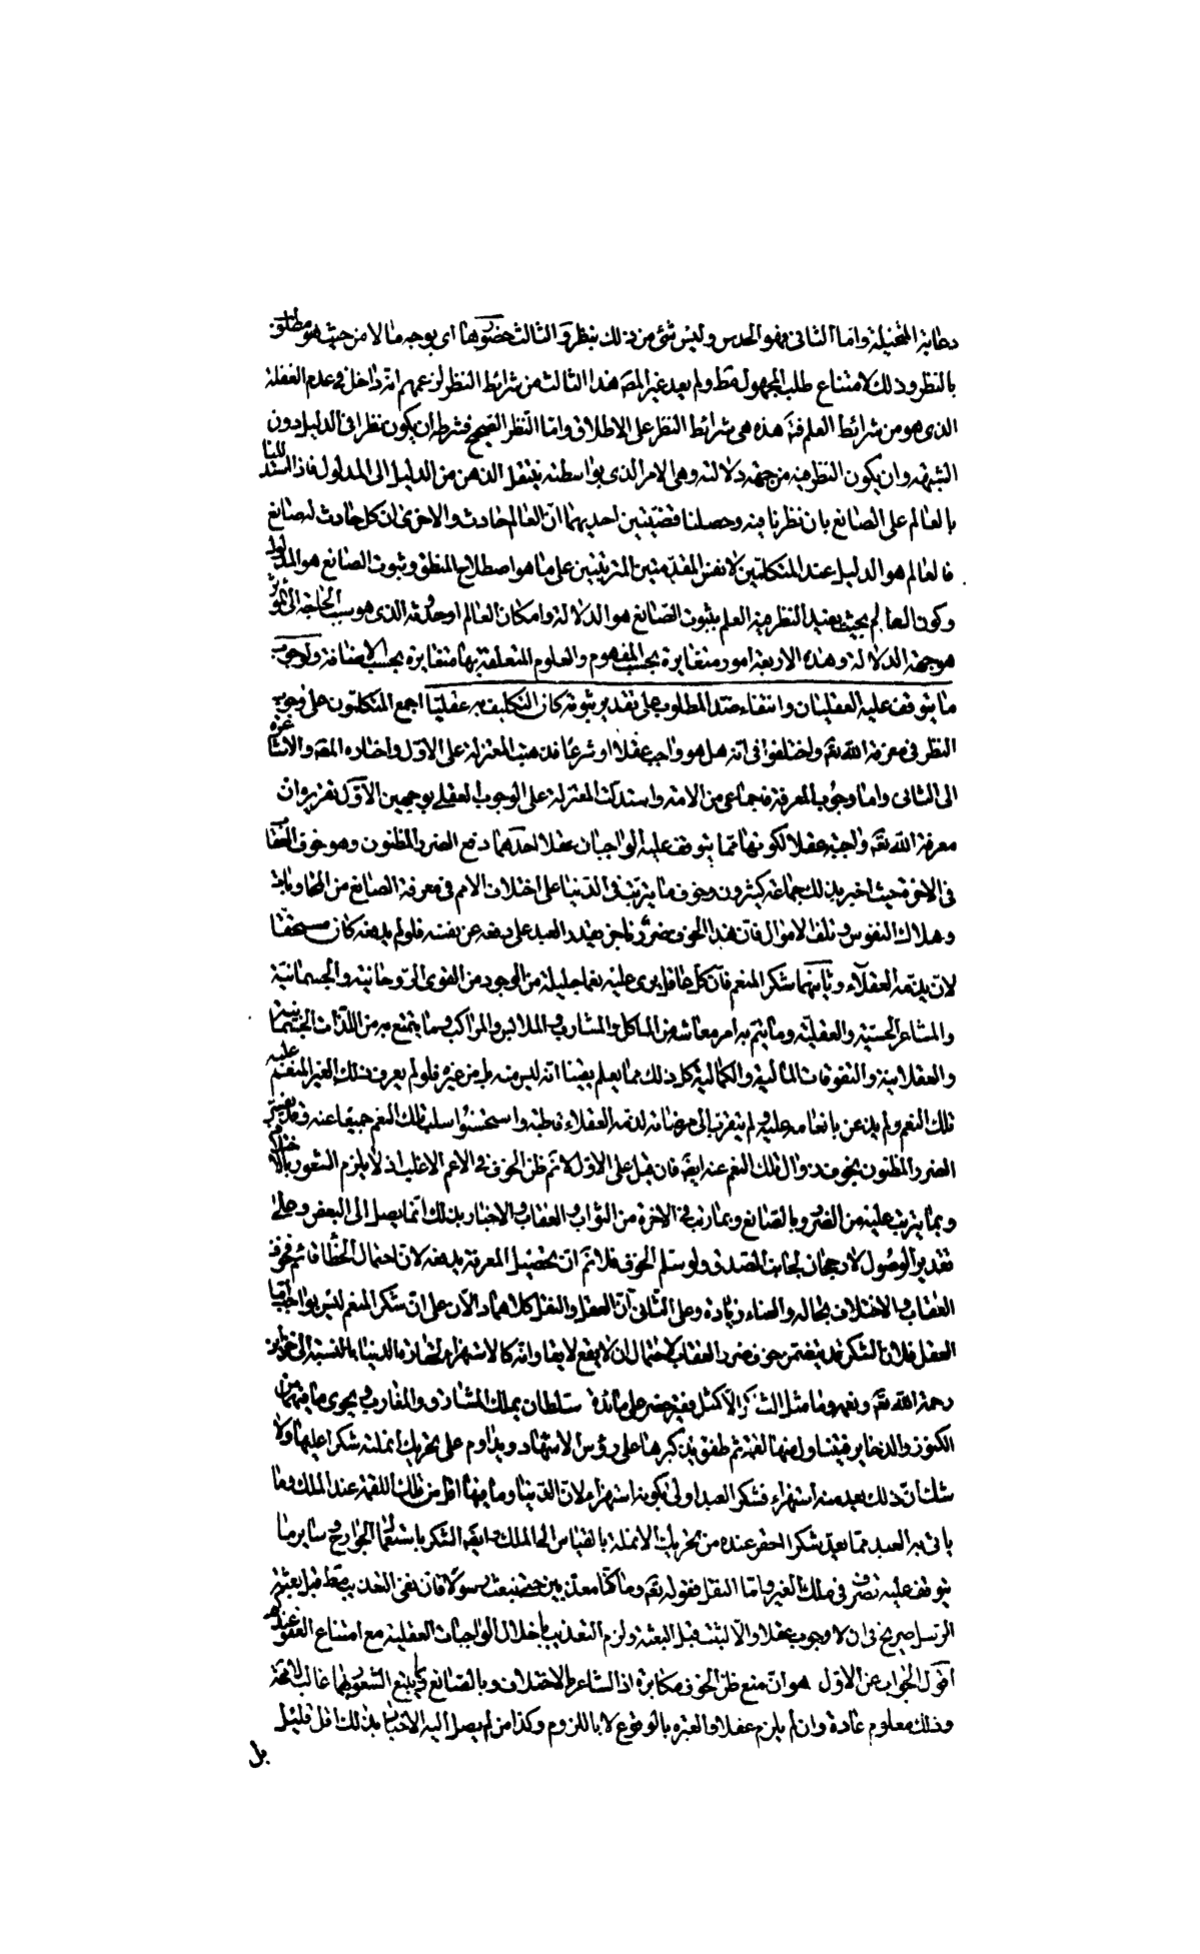 دعابة المتخيلة واما الثانى فهو الحدس وليس شئ من ذلك بنظر والثالث حضورها اى بوجه ما لا من حيث هو مطلوب
بالنظر وذلك لامتناع طلب المجهول مط ولم يعد غير المص هذا الثالث من شرائط النظر لزعمهم انه داخل فى عدم الغفلة
الذى هو من شرائط العلم فهذه هى شرائط النظر على الاطلاق واما النظر الصحيح فشرطه ان يكون نظرا فى الدليل دون
الشبهة وان يكون النظر فيه من جهة دلالته وهى الامر الذى بواسطته ينتقل الذهن من الدليل الى المدلول فاذا استدللنا
بالعالم على الصانع بان نظرنا فيه وحصلنا قضيتين احديهما ان العالم حادث والاخرى ان كل حادث له صانع
فالعالم هو الدليل عند المتكلمين لا نفس المقدمتين المترتبتين على ما هو اصطلاح المنطق وثبوت الصانع هو المدلول
وكون العالم بحيث يفيد النظر فيه العلم بثبوت الصانع هو الدلالة وامكان العالم او حدوثه الذى هو سبب الحاجة الى المؤثر
هو جهة الدلالة وهذه الاربعة امور متغايرة بحسب المفهوم والعلوم المتعلقة بها متغايرة بحسب الاضافة ولوجوب
ما يتوقف عليه العقليتان وانتفاء ضد المطلوب على تقدير ثبوته كان التكليف به عقليا اجمع المتكلمون على وجوب
النظر فى معرفة الله تعم واختلفوا فى انه هل هو واجب عقلا او شرعا فذهب المعتزلة على الاول واختاره المص والاشاعرة
الى الثانى واما وجوب المعرفة فبجماعى من الامة واستدلت المعتزلة على الوجوب العقلى بوجهين الاول تقريره ان
معرفة الله تعم واجبة عقلا لكونها مما يتوقف عليه الواجبان عقلا احدهما دفع الضرر المظنون وهو خوف العقاب
فى الاخرة حيث اخبر بذلك جماعة كثيرون وخوف ما يترتب فى الدنيا على اختلاف الامم فى معرفة الصانع من المحاربات
وهلاك النفوس وتلف الاموال فان هذا الخوف ضرر ناجز يقدر العبد على دفعه عن نفسه فلو لم يدفعه كان مستحقا
لان يذمه العقلاء وثانيهما شكر المنعم فان كل عاقل يرى عليه نعما جليلة من الوجود من القوى الروحانية والجسمانية
والمشاعر الحسية والعقلية وما يتم به امر معاشه من الماكل والمشارب والملابس والمراكب وما يتمتع به من اللذات الجسمانية
والعقلانية والتفوقات المالية والكمالية كل ذلك مما يعلم يقينا انه ليس منه بل من غيره فلو لم يعرف ذلك الغير المنعم عليه
تلك النعم ولم يذعن بانعامه عليه ولم يتقرب الى مرضاته لذمه العقلاء قاطبة واستحسنوا سلب تلك النعم جميعا عنه وقد يفسر
الضرر المظنون بخوف زوال تلك النعم عنه ايض فان قيل على الاول لا نم ظن الخوف فى الاعم الاغلب اذ لا يلزم الشعور بالاختلاف
وبما يترتب عليه من الضرر وبالصانع وبما رتب فى الاخرة من الثواب والعقاب والاخبار بذلك انما يصل الى البعض وعلى
تقدير الوصول لا رجحان لجانب الصدق ولو سلم الخوف فلا نم ان تحصيل المعرفة يدفعه لان احتمال الخطا قائم فخوف
العقاب والاختلاف بحاله والعناء زيادة وعلى الثانى ان العقل والنقل كلاهما دالان على ان شكر المنعم ليس بواجب اما
العقل فلان الشكر قد يتضمن خوف ضرر العقاب لاحتمال ان لا يقع لايقا وانه كالاستهزاء لحقارة الدنيا بالنسبة الى خزاين
رحمة الله تعم ونعمه وما مثل الشاكر الا كمثل فقير حضر على مائدة سلطان يملك المشارق والمغارب ويحوى ما فيهما من
الكنوز والذخاير فيتناول منها لقمة ثم طفق يذكرها على رؤس الاشهاد ويداوم على تحريك انملته شكرا عليها ولا
شك ان ذلك يعد منه استهزاء فشكر العبد اولى بكونه استهزاء لان الدنيا وما فيها اقل من تلك اللقمة عند الملك وما
ياتى به العبد مما يعد شكرا احقر عنده من تحريك الانملة بالقياس الى الملك وايض الشكر باستعمال الجوارح وساير ما
يتوقف عليه تصرف فى ملك الغير واما النقل فقوله تعم وما كنا معذبين حتى نبعث رسولا فان نفى التعذيب مط قبل بعثة
الرسل صريح فى ان لا وجوب عقلا والا لثبت قبل البعثة ولزم التعذيب باخلال الواجبات العقلية مع امتناع العفو عندهم
اقول الجواب عن الاول هو ان منع ظن الخوف مكابرة اذ الشاعر بالاختلاف وبالصانع لا يمتنع الشعور بهما غالب لا محة
وذلك معلوم عادة وان لم يلزم عقلا والعبرة بالوقوع لا باللزوم وكذا من لم يصل اليه الاخبار بذلك اقل قليل
بل